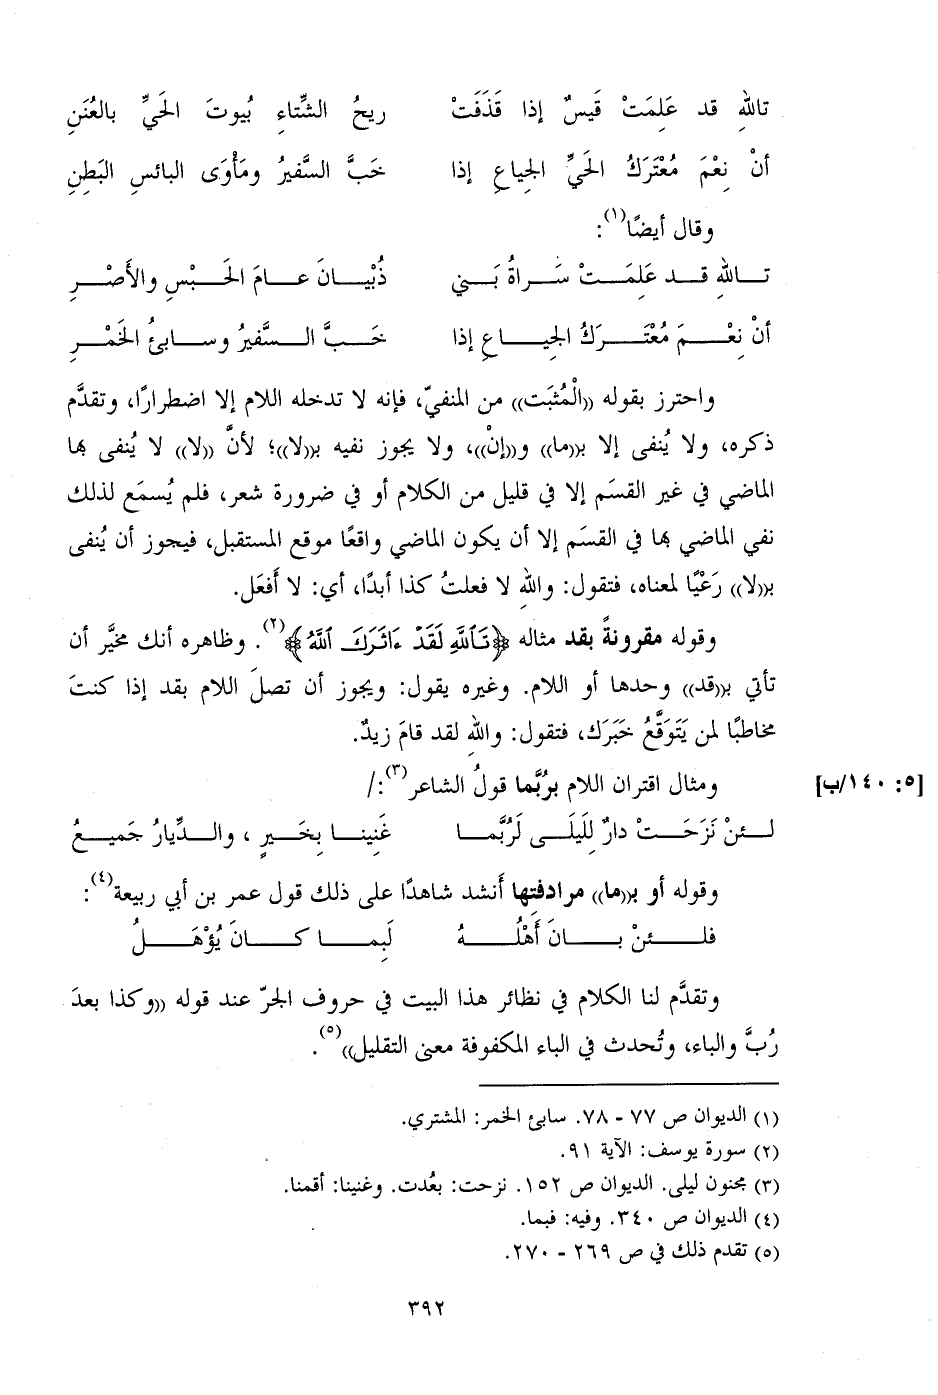 تاللهِ قد عَلِمَتْ قَيسٌ إذا قَذَفَتْ ريحُ الشِّتاءِ بُيوتَ الحَيِّ بالعُنَنِ
أنْ نِعْمَ مُعْتَرَكُ الحَيِّ الجِياعِ إذا خَبَّ السَّفيرُ ومَأْوَى البائسِ البَطِنِ
وقال أيضًا(١):
تـاللهِ قـد عَلِمَـتْ سَـراةُ بَـني ذُبْيـانَ عـامَ الحَـبْسِ والأَصْـرِ
أنْ نِعْـمَ مُعْتَـرَكُ الجِيـاعِ إذا خَـبَّ الـسَّفيرُ وسـابئُ الخَمْـرِ
واحترز بقوله «الْمُثبَت» من المنفيّ، فإنه لا تدخله اللام إلا اضطرارًا، وتقدَّم
ذكره، ولا يُنفى إلا بـ«ما» و«إنْ»، ولا يجوز نفيه بـ«لا»؛ لأنَّ «لا» لا يُنفى بها
الماضي في غير القسَم إلا في قليل من الكلام أو في ضرورة شعر، فلم يُسمَع لذلك
نفي الماضي بها في القسَم إلا أن يكون الماضي واقعًا موقع المستقبل، فيجوز أن يُنفى
بـ«لا» رَعْيًا لمعناه، فتقول: واللهِ لا فعلتُ كذا أبدًا، أي: لا أَفعَل.
وقوله مقرونةً بقد مثاله ﴿تَٱللَّهِ لَقَدۡ ءَاثَرَكَ ٱللَّهُ﴾(٢). وظاهره أنك مخيَّر أن
تأتي بـ«قد» وحدها أو اللام. وغيره يقول: ويجوز أن تصلَ اللام بقد إذا كنتَ
مخاطبًا لمن يَتَوَقَّعُ خَبَرَك، فتقول: واللهِ لقد قامَ زيدٌ.
ومثال اقتران اللام بِرُبَّما قولُ الشاعر(٣):/ [٥: ١٤٠/ب]
لـئنْ نَزَحَـتْ دارٌ لِلَيلَـى لَرُبَّمـا غَنِينـا بِخَـيرٍ ، والـدِّيارُ جَميـعُ
وقوله أو بـ«ما» مرادفتِها أَنشد شاهدًا على ذلك قول عمر بن أبي ربيعة(٤):
فلـئنْ بـانَ أَهْلُـهُ لَبِمـا كـانَ يُؤْهَـلُ
وتقدَّم لنا الكلام في نظائر هذا البيت في حروف الجرّ عند قوله «وكذا بعدَ
رُبَّ والباء، وتُحدث في الباء المكفوفة معنى التقليل»(٥).
(١) الديوان ص ٧٧ - ٧٨. سابئ الخمر: المشتري.
(٢) سورة يوسف: الآية ٩١.
(٣) مجنون ليلى. الديوان ص ١٥٢. نزحت: بعُدت. وغنينا: أقمنا.
(٤) الديوان ص ٣٤٠. وفيه: فبما.
(٥) تقدم ذلك في ص ٢٦٩ - ٢٧٠.
٣٩٢